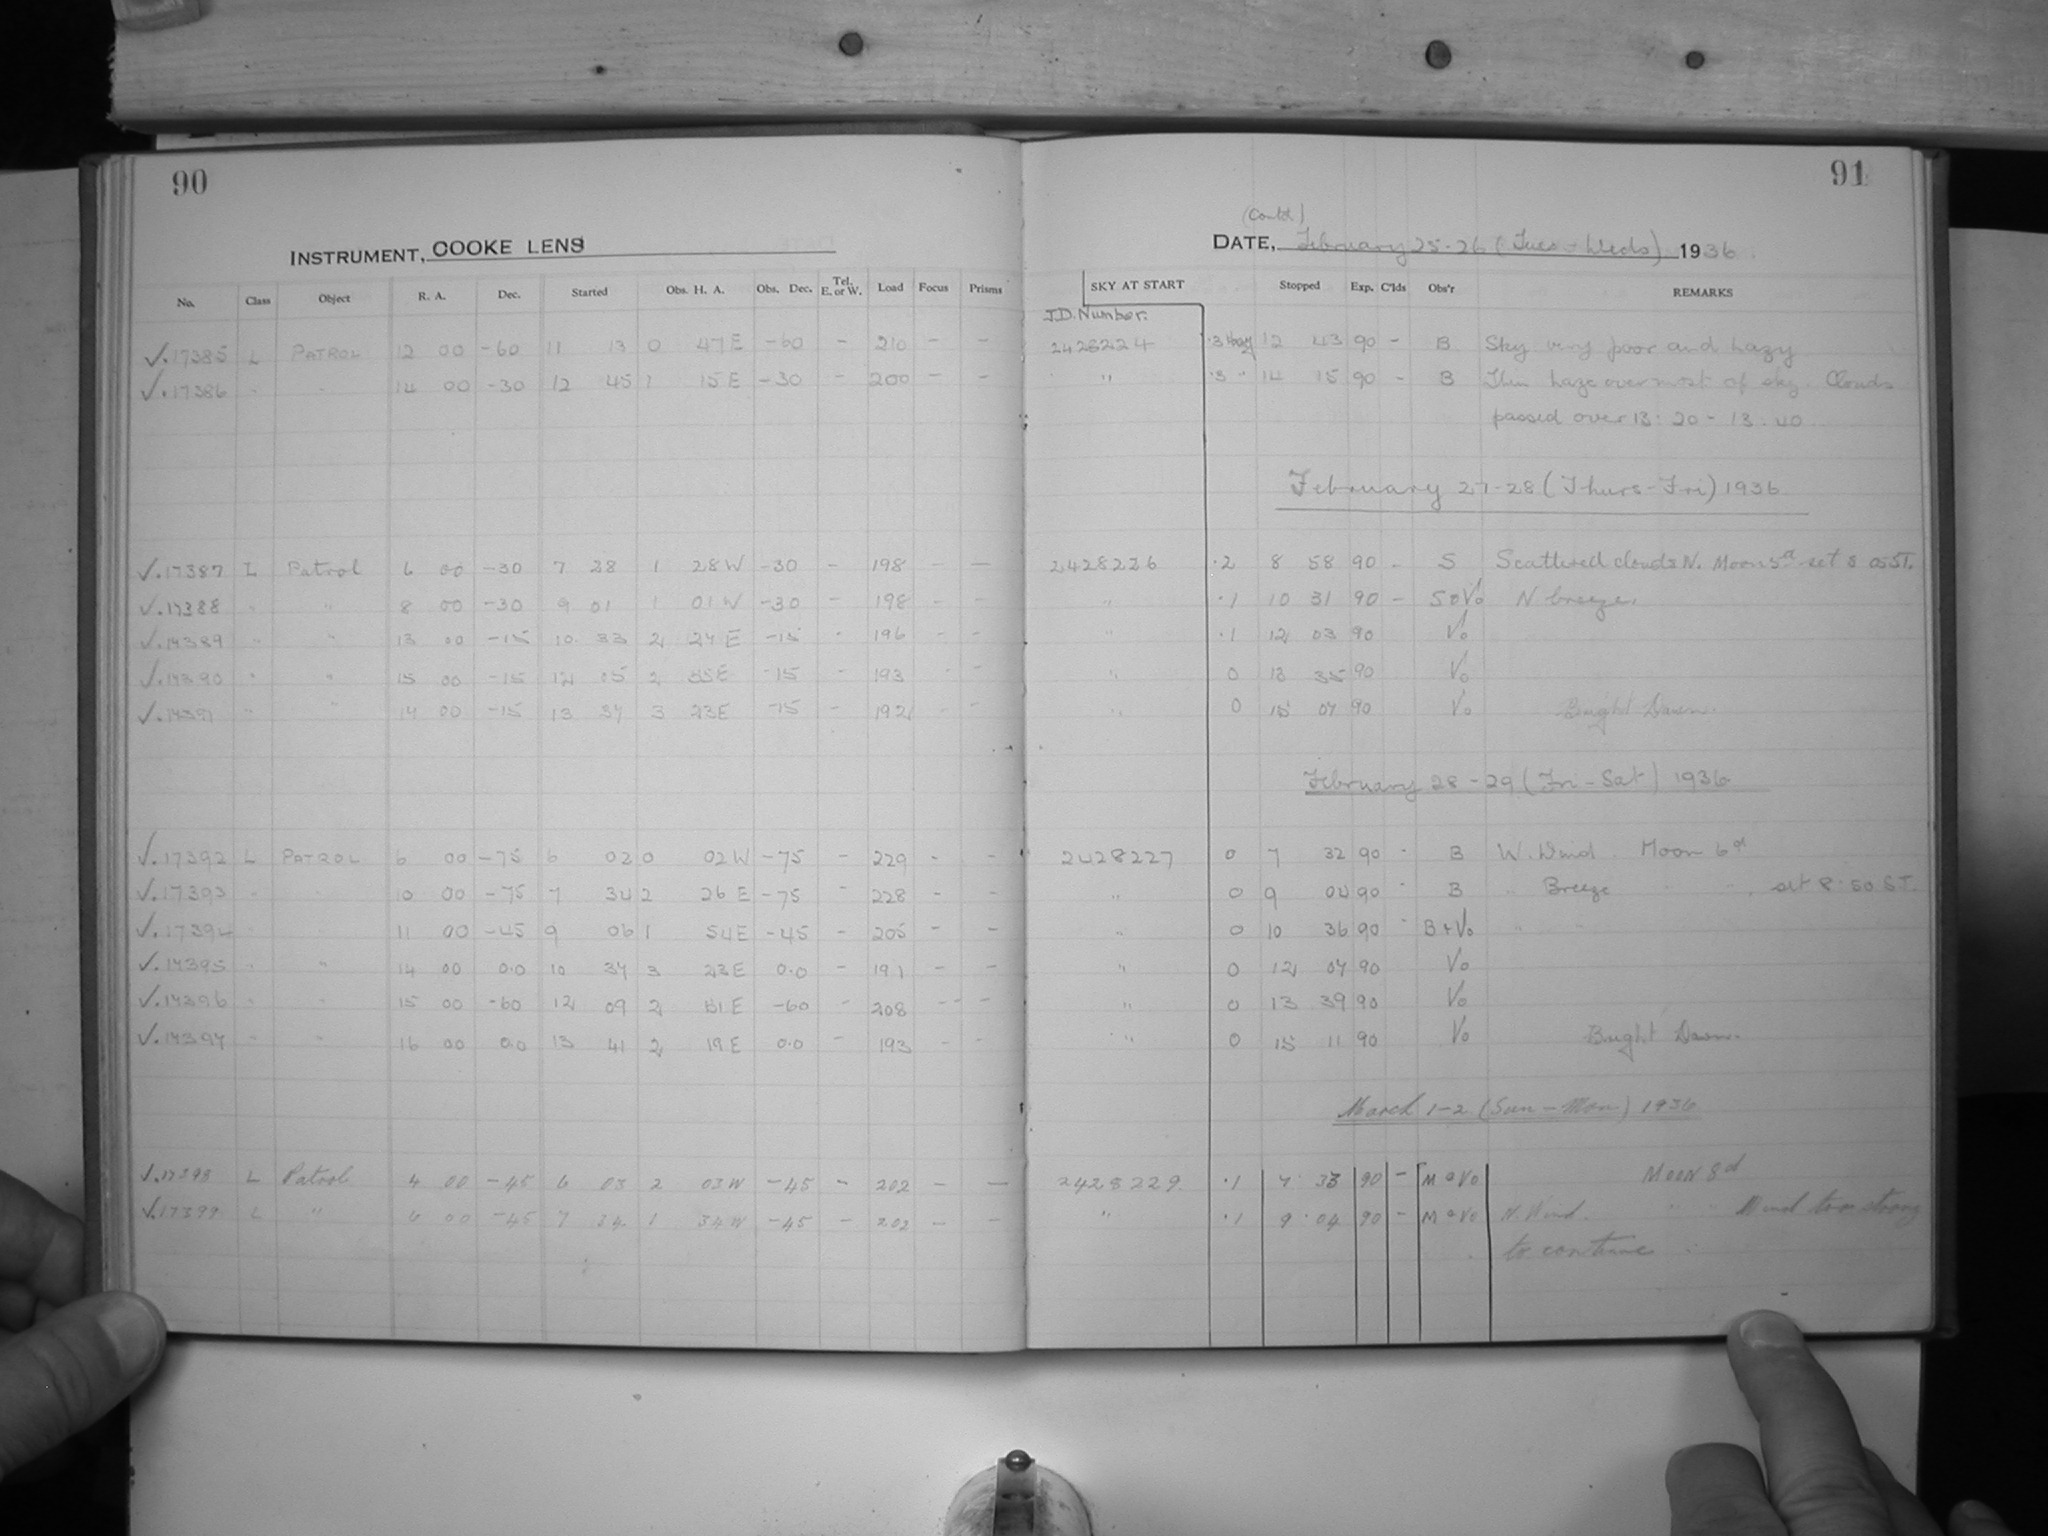 90
INSTRUMENT, COOKE LENS
No. Class Object R. A. Dec. Started Obs. H. A. Obs. Dec. Tel. E. or W. Load Focus Prisms
√.17385 L PATROL 12 00 -60 11 13 0 47E -60 - 210 - -
√.17386 " " 14 00 -30 12 45 1 15E -30 - 200 - -
√.17387 L Patrol 6 00 -30 7 28 1 28W -30 - 198 - -
√.17388 " " 8 00 -30 9 01 1 01W -30 - 198 - -
√.17389 " " 13 00 -15 10 33 2 27E -15 - 196 - -
√.17390 " " 15 00 -15 12 05 2 55E -15 - 193 - -
√.17391 " " 17 00 -15 13 37 3 23E -15 - 192 - -
√.17392 L PATROL 6 00 -75 6 02 0 02W -75 - 229 - -
√.17393 " " 10 00 -75 7 34 2 26E -75 - 228 - -
√.17394 " " 11 00 -45 9 06 1 54E -45 - 205 - -
√.17395 " " 14 00 0.0 10 37 3 23E 0.0 - 191 - -
√.17396 " " 15 00 -60 12 09 2 51E -60 - 208 - - -
√.17397 " " 16 00 0.0 13 41 2 19E 0.0 - 193 - -
√.17398 L Patrol 4 00 -45 6 03 2 03W -45 - 202 - -
√.17399 L " 6 00 -45 7 34 1 34W -45 - 202 - -
91
(Contd)
DATE, February 25-26 (Tues-Weds) 1936.
SKY AT START Stopped Exp. C'lds Obs'r REMARKS
J.D. Number.
2428224 .3 Hazy 12 43 90 - B Sky very poor and hazy
" .3 " 14 15 90 - B Thin haze over most of sky. Clouds
passed over 13:20 - 13.40
February 27-28 (Thurs-Fri) 1936
2428226 .2 8 58 90 - S Scattered clouds N. Moon 5d set 8 05 ST.
" .1 10 31 90 - S & Vo N breeze.
" .1 12 03 90 Vo
" 0 13 35 90 Vo
" 0 15 07 90 Vo Bright Dawn.
February 28-29 (Fri-Sat) 1936
2428227 0 7 32 90 - B W. Wind Moon 6d
" 0 9 04 90 - B " Breeze " " , set 8.50 ST.
" 0 10 36 90 - B + Vo " "
" 0 12 07 90 Vo
" 0 13 39 90 Vo
" 0 15 11 90 Vo Bright Dawn.
March 1-2 (Sun-Mon) 1936
2428229 .1 7 33 90 - M & Vo Moon 8d
" .1 9 04 90 - M & Vo N. Wind. " " Wind too strong
to continue